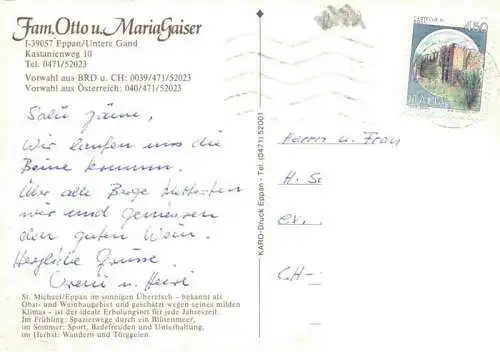 Fam. Otto u. Maria Gaiser
I-39057 Eppan/Untere Gand
Kastanienweg 10
Tel. 0471/52023
Vorwahl aus BRD u. CH: 0039/471/52023
Vorwahl aus Österreich: 040/471/52023
Salü
Wir laufen uns die
Beine krumm.
Über alle Berge
wir und geniessen
den guten Wein.
Herzliche Grüsse
u. Heidi
St. Michael/Eppan im sonnigen Überetsch – bekannt als
Obst- und Weinbaugebiet und geschätzt wegen seines milden
Klimas – ist der ideale Erholungsort für jede Jahreszeit.
Im Frühling: Spazierwege durch ein Blütenmeer,
im Sommer: Sport, Badefreuden und Unterhaltung,
im Herbst: Wandern und Törggelen.
KARO-Druck Eppan - Tel. (0471) 52001
450
ITALIA
Herrn u. Frau
H. S
CH-